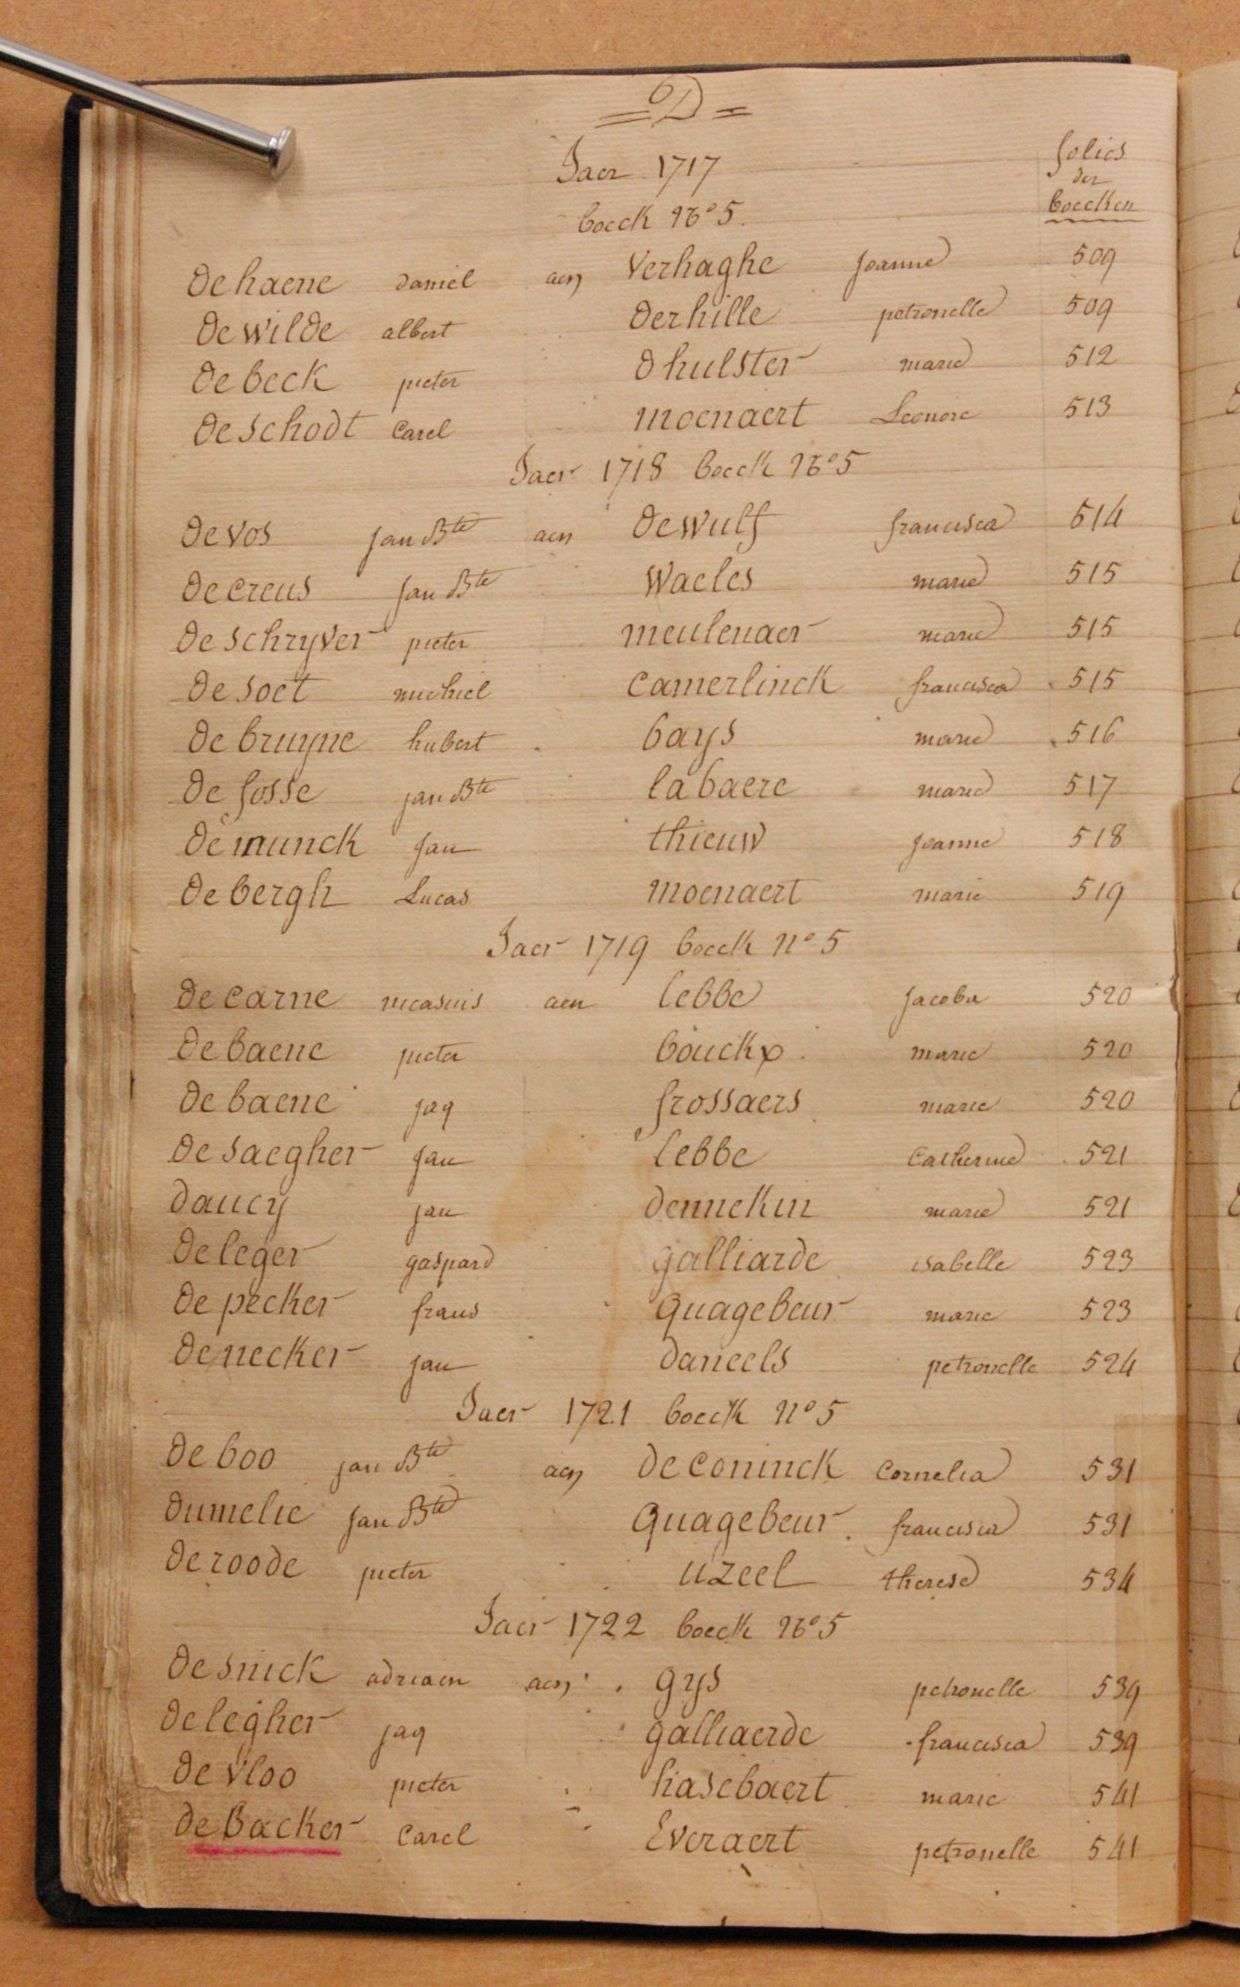 = D =
Jaer 1717
folios
der
boecken
boeck No 5.
De haene daniel aen Verhaghe joanne 509
De Wilde albert Derhille petronelle 509
De beck pieter Dhulster marie 512
De schodt Carel moenaert Leonore 513
Jaer 1718 boeck No 5
De vos jan Bte aen De Wulf francisca 514
De creus jan Bte Waeles marie 515
De schryver pieter meulenaer marie 515
De soet michiel Camerlinck francisca 515
De bruyne hubert bays marie 516
De fosse jan Bte labaere marie 517
De munck jan thieuw joanne 518
De bergh Lucas moenaert marie 519
Jaer 1719 boeck No 5
De carne nicasius aen lebbe jacoba 520
De baene pieter bouckx marie 520
De baene jaq frossaers marie 520
De saegher jan lebbe Catherine 521
daucy jan dennekin marie 521
De leger gaspard galliarde isabelle 523
De pecker frans Quagebeur marie 523
De necker jan daneels petronelle 524
Jaer 1721 boeck No 5
De boo jan Bte aen De Coninck Cornelia 531
Dumelie jan Bte Quagebeur francisca 531
De roode pieter uzeel therese 534
Jaer 1722 boeck No 5
De snick adriaen aen gys petronelle 539
De legher jaq galliaerde francisca 539
De vloo pieter hasebaert marie 541
de Backer Carel Everaert petronelle 541